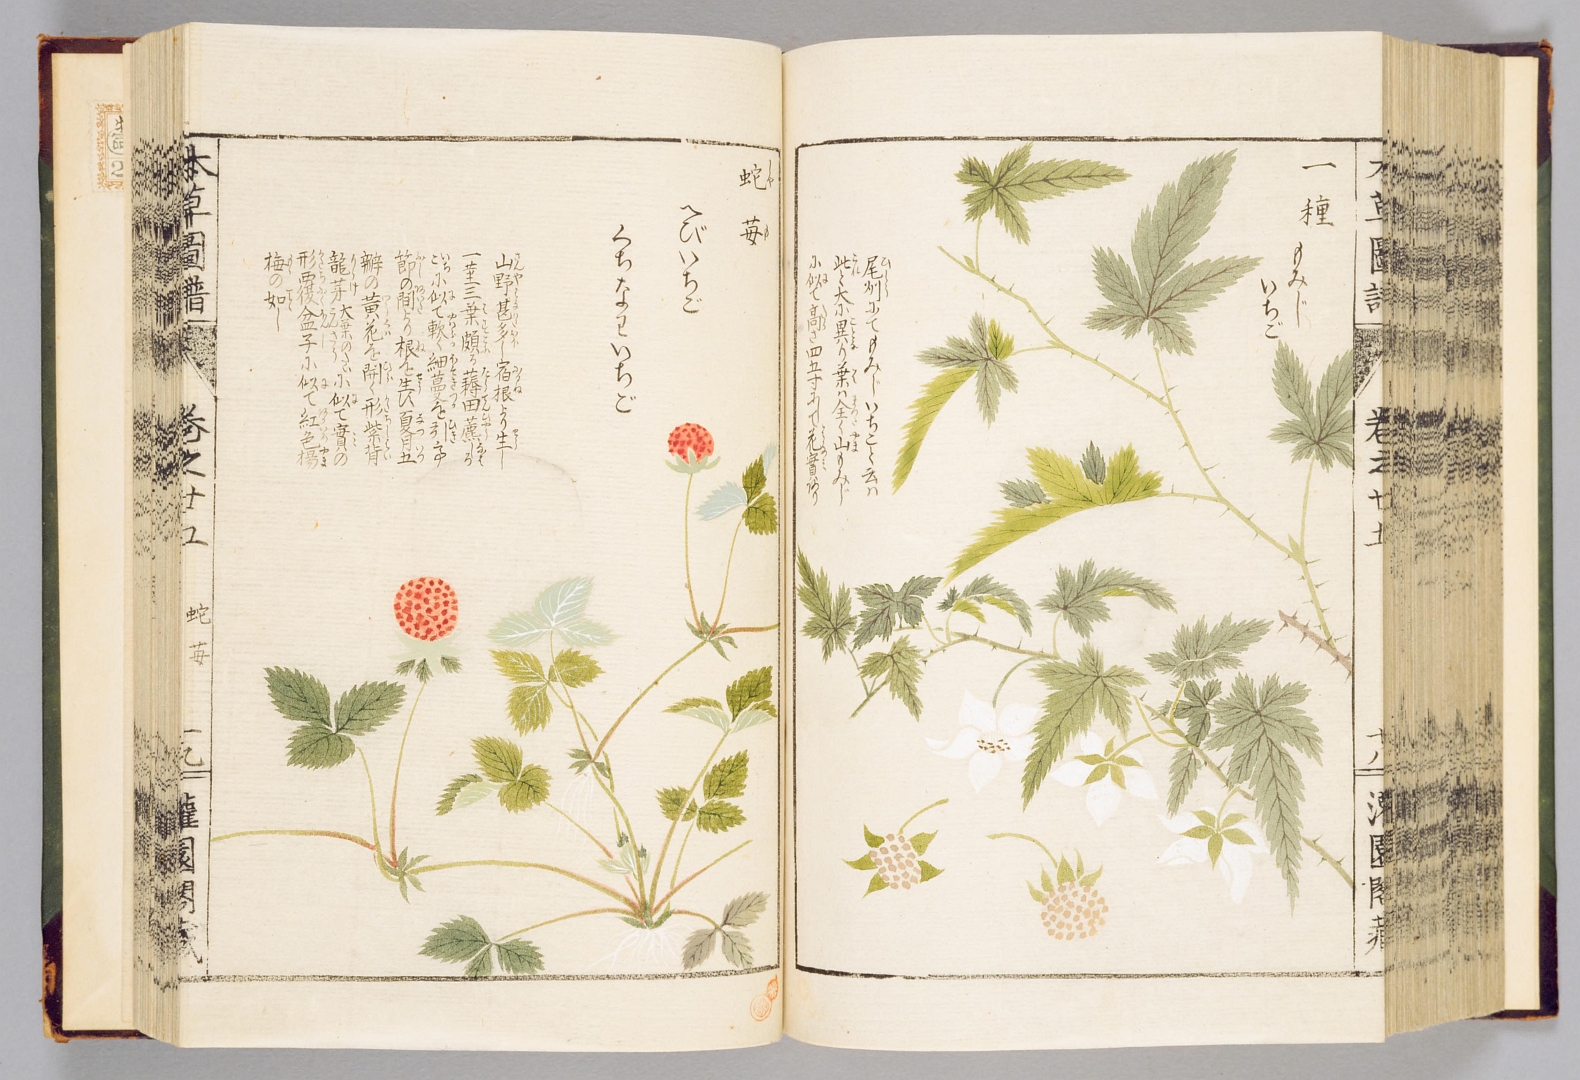 本草圖譜 卷之廿五 十八 灌園閣藏
一種
もみじ
いちご
尾州にてもみじいちごと云ハ
此と大小異り葉ハ全く山もみじ
に似て高さ四五寸
蛇苺
しやも
へびいちご
くちなはいちご
山野甚多し宿根より生し
一茎三葉頗る薅田藨
に似て軟く細蔓を引き
節の間より根を生ひ夏月五
瓣の黄花を開く形紫背
龍芽 に似て實の
形覆盆子に似て紅色楊
梅の如し
本草圖譜 卷之廿五 蛇苺 灌園閣藏